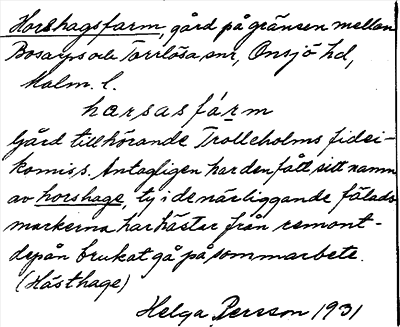 Horshagsfarm, gård på gränsen mellan
Bosarps och Torrlösa snr, Onsjö hd,
Malm. l.
harsasfarm
Gård tillhörande Trolleholms fidei-
komiss. Antagligen har den fått sitt namn
av horshage, ty i de närliggande fälads
markerna har hästar från remont-
depån brukat gå på sommarbete.
(Hästhage)
Helga Persson 1931